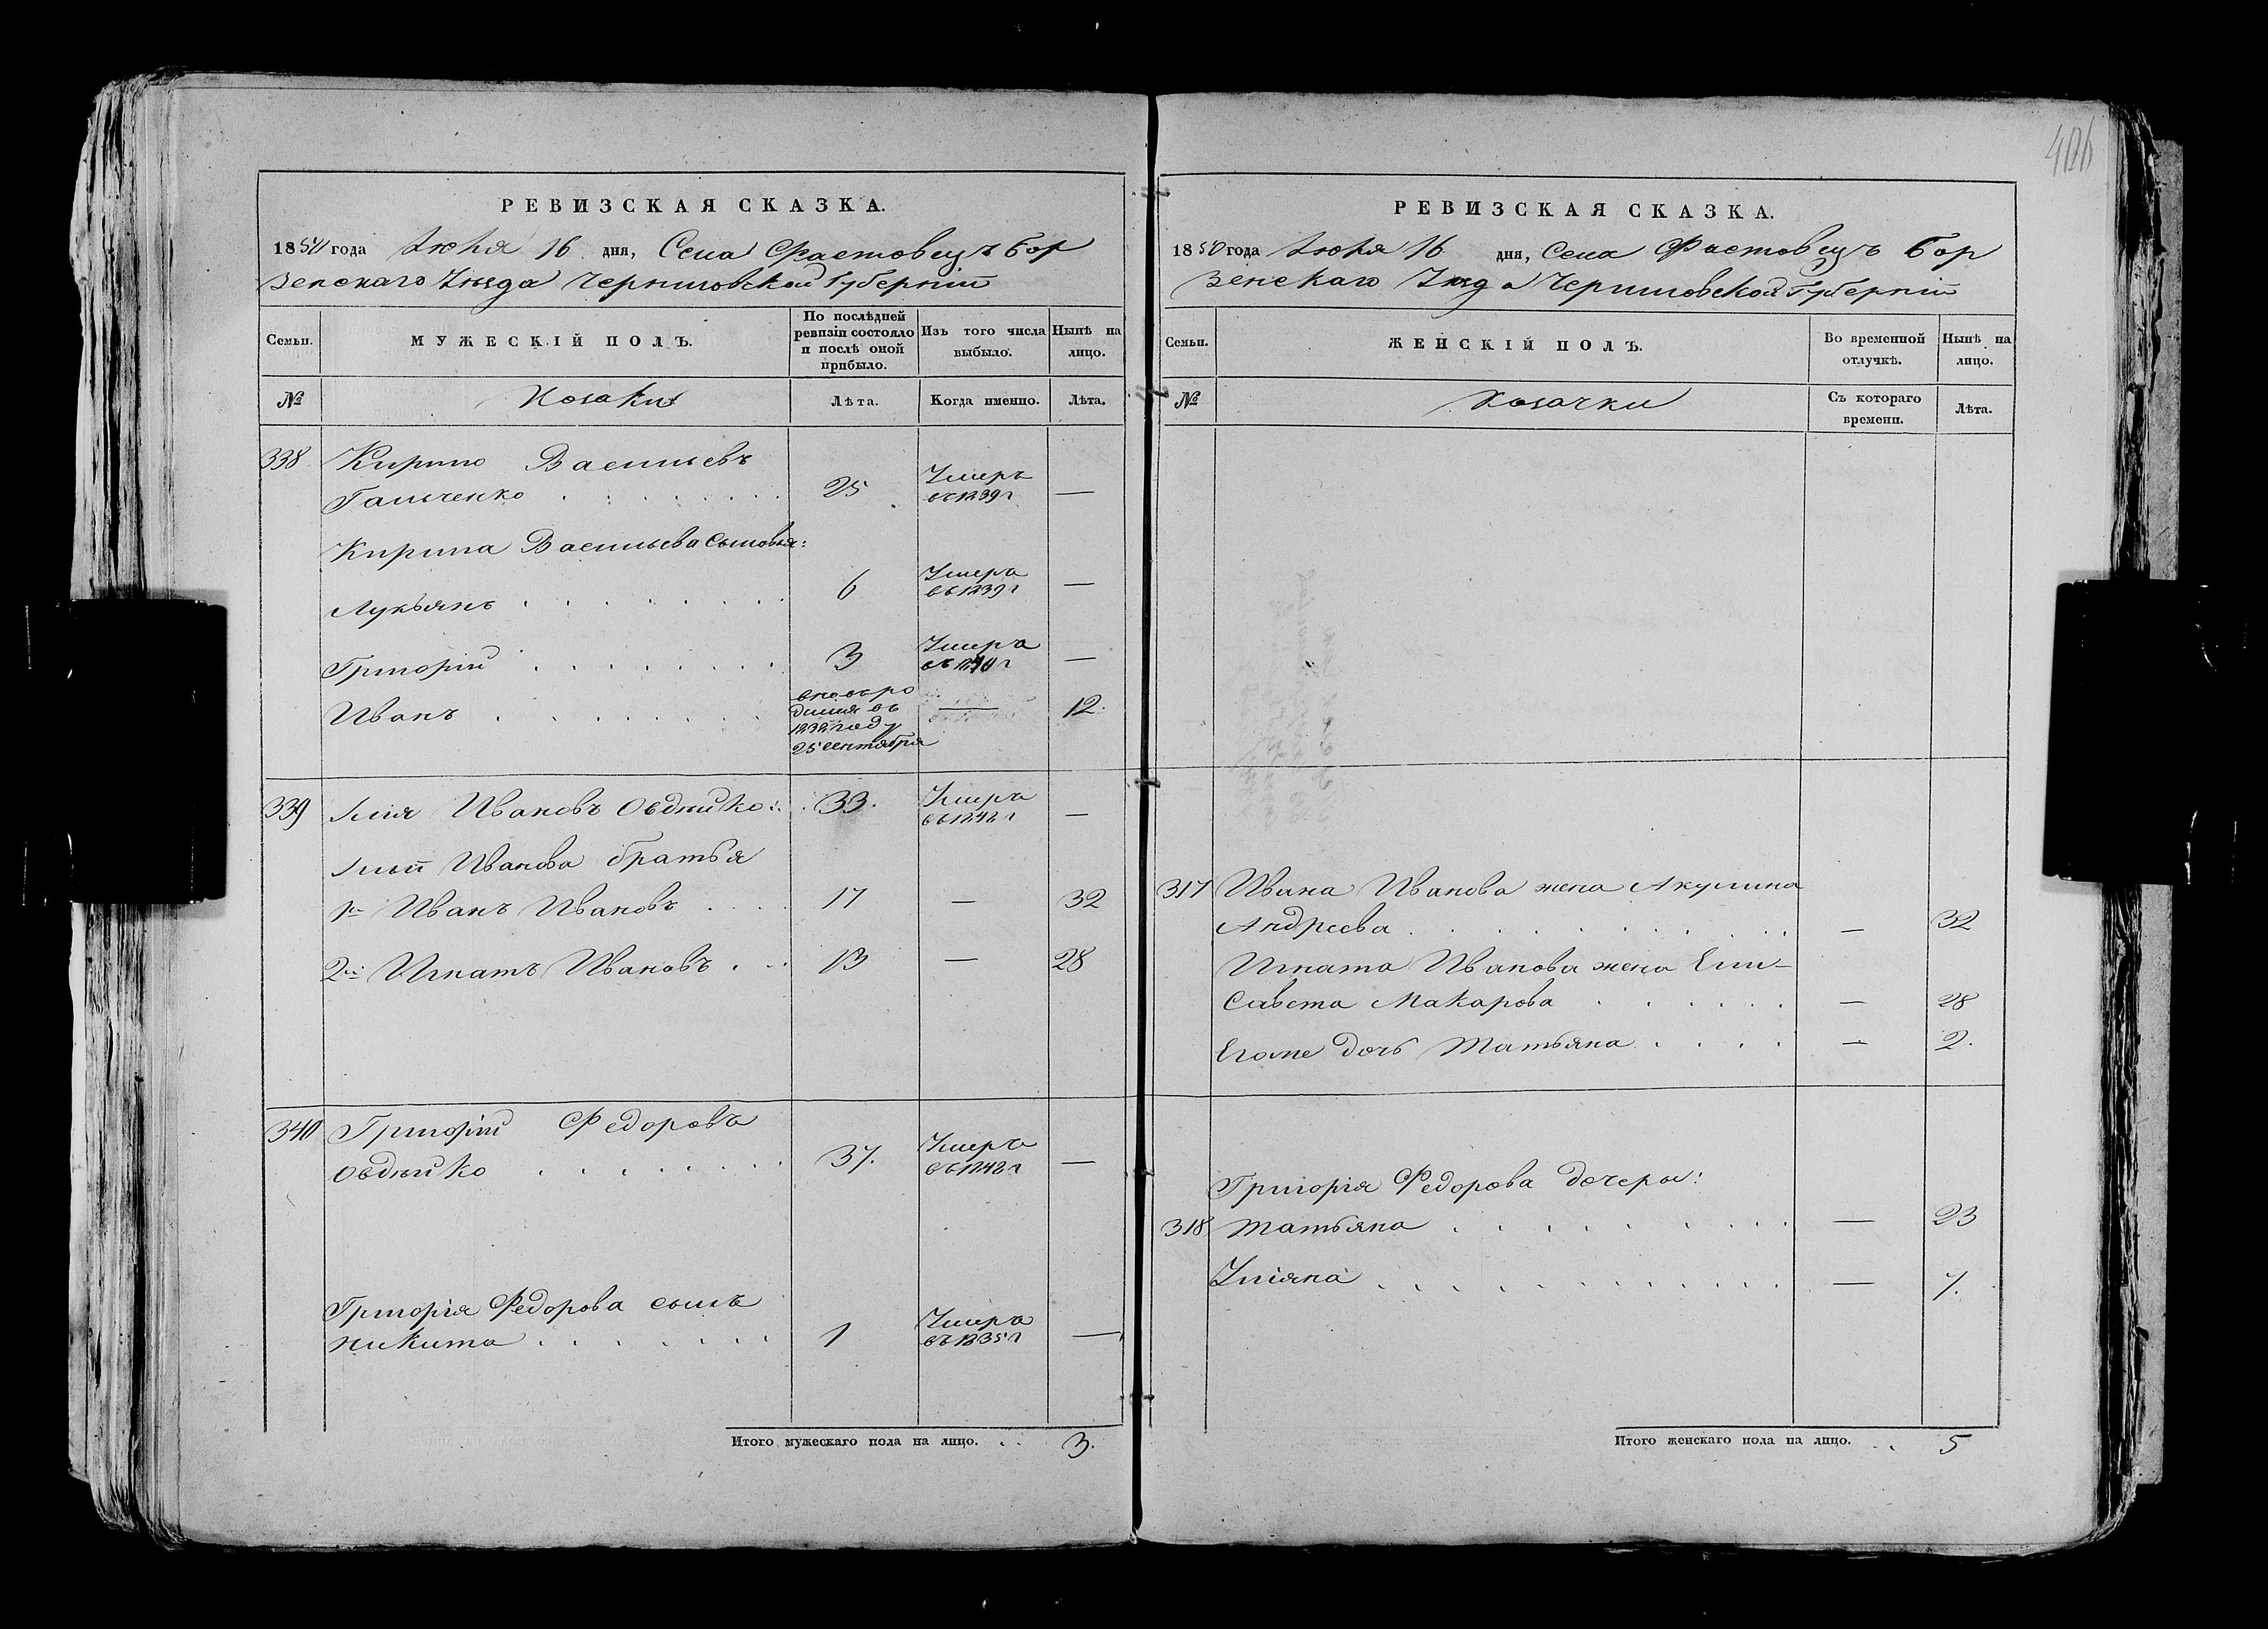 406
РЕВИЗСКАЯ СКАЗКА.
1850 года Іюня 16 дня, Села Фастовецъ Бор
зенскаго Уѣзда Черниговской Губерніи
Семьи.
МУЖЕСКІЙ ПОЛЪ.
По послѣдней
ревизіи состояло
и послѣ оной
прибыло.
Изъ того числа
выбыло.
Нынѣ на
лицо.
№
Козаки
Лѣта.
Когда именно.
Лѣта.
338 Кирило Васильевъ
Гальченко . . . . . . . 25 Умеръ въ 1839 г —
Кирила Васильева сыновья:
Лукьянъ . . . . . . . 6 Умеръ въ 1839 г —
Григорій . . . . . . . 3 Умеръ въ 1840 г —
Иванъ . . . . . . . вновь ро
дился въ
1838 году
25 сентября — 12.
339 Илія Ивановъ Овдѣйко: 33. Умеръ въ 1842 г —
Иліи Иванова братья
1й Иванъ Ивановъ . . . 17 — 32
2й Игнатъ Ивановъ . . . 13 — 28
340 Григорій Федоровъ
Овдѣйко . . . . . . . 37. Умеръ въ 1848 г —
Григорія Федорова сынъ
Никита . . . . . . . 1 Умеръ въ 1835 г —
Итого мужескаго пола на лицо. . . 3.
РЕВИЗСКАЯ СКАЗКА.
1850 года Іюня 16 дня, Села Фастовецъ Бор
зенскаго Уѣзда Черниговской Губерніи
Семьи.
ЖЕНСКІЙ ПОЛЪ.
Во временной
отлучкѣ.
Нынѣ на
лицо.
№
Козачки
Съ котораго
времени.
Лѣта.
317 Ивана Иванова жена Акулина
Андреева . . . . . . . — 32
Игната Иванова жена Ели-
савета Макарова . . . . . . — 28
Егоже дочь Татьяна . . . . — 2.
Григорія Федорова дочеры:
318 Татьяна . . . . . . . — 23
Уліяна . . . . . . . — 7.
Итого женскаго пола на лицо. . . 5